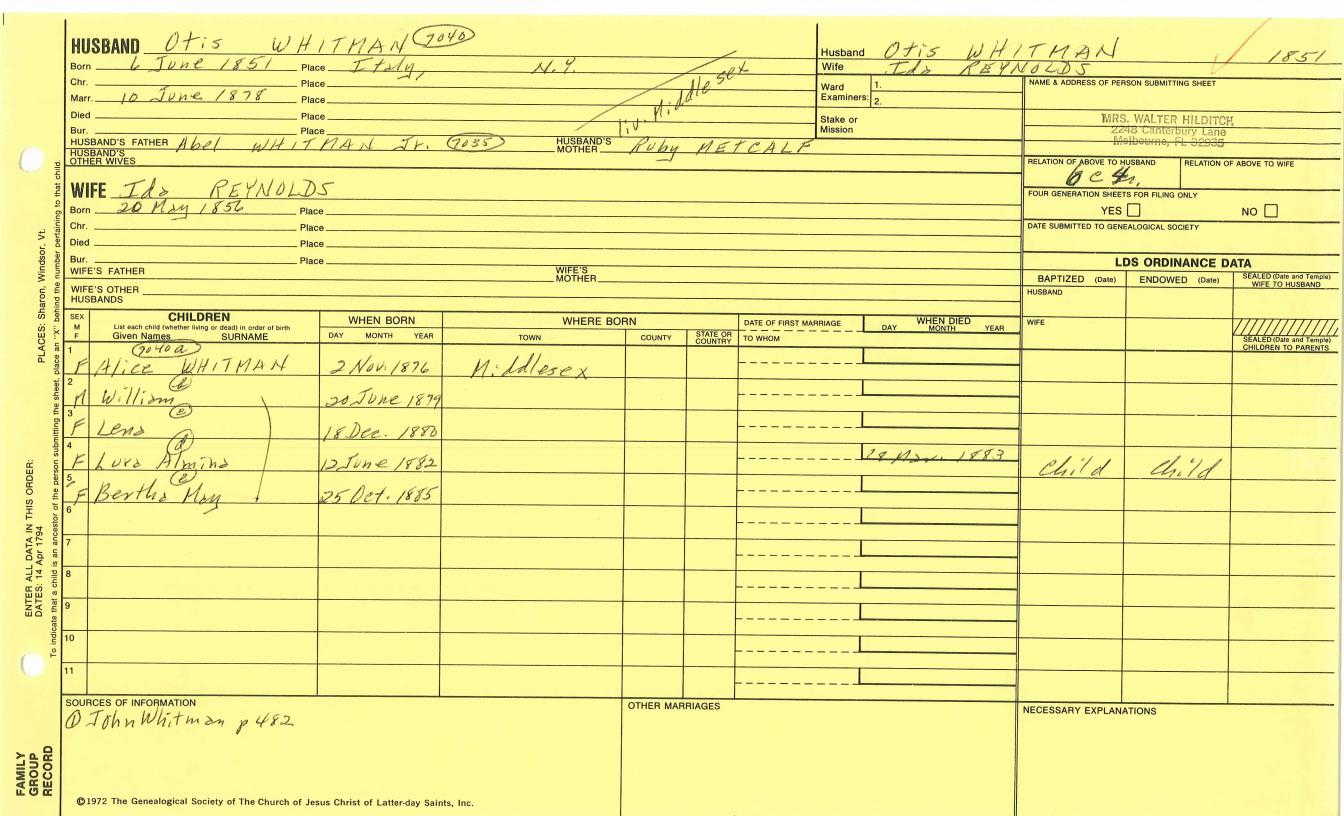 HUSBAND Otis WHITMAN 7040
Born 6 June 1851 Place Italy, N.Y.
Chr. Place
Marr. 10 June 1878 Place
Died Place
Bur. Place
liv. Middlesex
HUSBAND'S FATHER Abel WHITMAN Jr. 7035 HUSBAND'S MOTHER Ruby METCALF
HUSBAND'S OTHER WIVES
Husband Otis WHITMAN 1851
Wife Ida REYNOLDS
Ward Examiners: 1.
2.
Stake or Mission
NAME & ADDRESS OF PERSON SUBMITTING SHEET
MRS. WALTER HILDITCH
2248 Canterbury Lane
Melbourne, FL 32935
RELATION OF ABOVE TO HUSBAND RELATION OF ABOVE TO WIFE
FOUR GENERATION SHEETS FOR FILING ONLY
YES NO
DATE SUBMITTED TO GENEALOGICAL SOCIETY
WIFE Ida REYNOLDS
Born 20 May 1856 Place
Chr. Place
Died Place
Bur. Place
WIFE'S FATHER WIFE'S MOTHER
WIFE'S OTHER HUSBANDS
LDS ORDINANCE DATA
BAPTIZED (Date) ENDOWED (Date) SEALED (Date and Temple) WIFE TO HUSBAND
HUSBAND
WIFE
SEALED (Date and Temple) CHILDREN TO PARENTS
SEX M F CHILDREN WHEN BORN WHERE BORN DATE OF FIRST MARRIAGE WHEN DIED
List each child (whether living or dead) in order of birth
Given Names SURNAME DAY MONTH YEAR TOWN COUNTY STATE OR COUNTRY TO WHOM DAY MONTH YEAR
1 7040a
F Alice WHITMAN 2 Nov. 1876 Middlesex
2 b
M William 20 June 1879
3 c
F Lena 18 Dec. 1880
4 d
F Lura Almina 12 June 1882 28 Mar. 1883 Child Child
5 e
F Bertha May 25 Oct. 1885
6
7
8
9
10
11
SOURCES OF INFORMATION OTHER MARRIAGES NECESSARY EXPLANATIONS
① John Whitman p 482
©1972 The Genealogical Society of The Church of Jesus Christ of Latter-day Saints, Inc.
FAMILY GROUP RECORD
ENTER ALL DATA IN THIS ORDER:
DATES: 14 Apr 1794 PLACES: Sharon, Windsor, Vt.
To indicate that a child is an ancestor of the person submitting the sheet, place an "X" behind the number pertaining to that child.